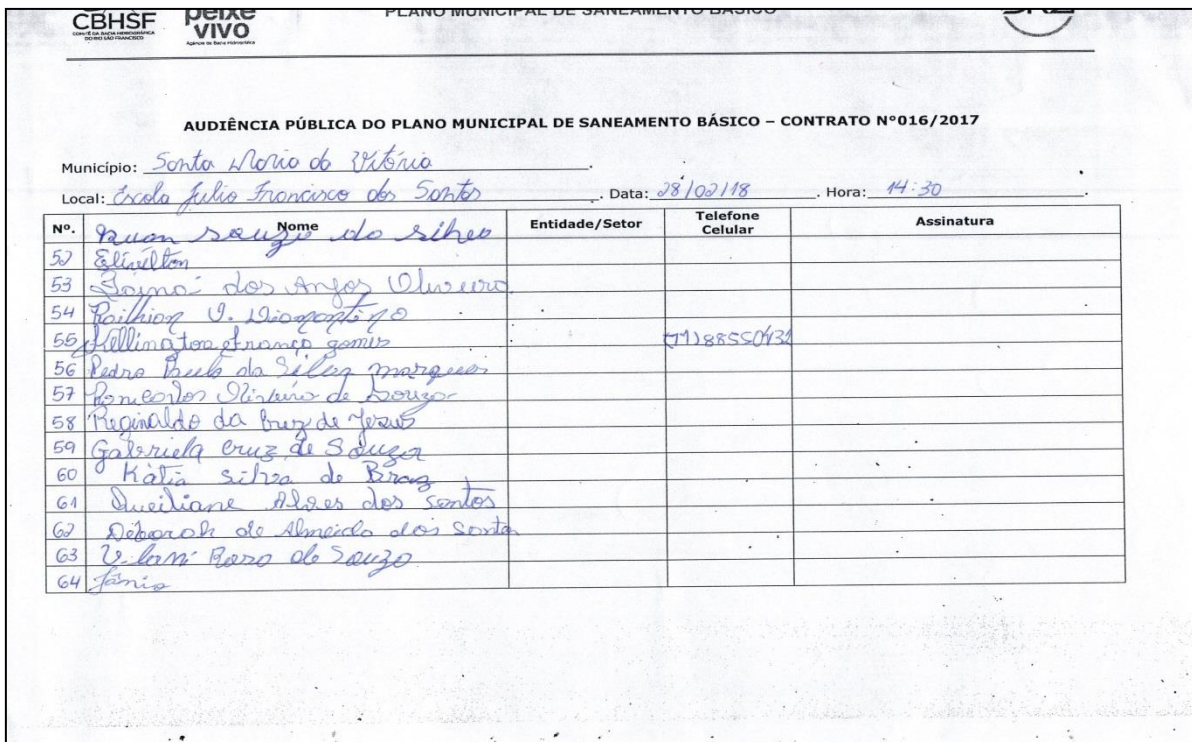 CBHSF
COMITÊ DA BACIA HIDROGRÁFICA
DO RIO SÃO FRANCISCO
peixe
VIVO
Agência de Bacia Hidrográfica
PLANO MUNICIPAL DE SANEAMENTO BÁSICO
AUDIÊNCIA PÚBLICA DO PLANO MUNICIPAL DE SANEAMENTO BÁSICO – CONTRATO Nº016/2017
Município: Santa Maria da Vitória
Local: Escola Julio Francisco dos Santos. Data: 28/02/18. Hora: 14:30.
Nº. Nome Entidade/Setor Telefone Celular Assinatura
Ruan souza da silva
52 Elivélton
53 dos Anjos Oliveira
54
55 gomes
56 Pedro Paulo da Silva marques
57 de Souza
58 Reginaldo da Cruz de Jesus
59 Gabriela Cruz de Souza
60 Kátia Silva de Braz
61 Queiliane Alves dos Santos
62 Déborah de Almeida dos Santos
63 Rosa de Souza
64 Jânio